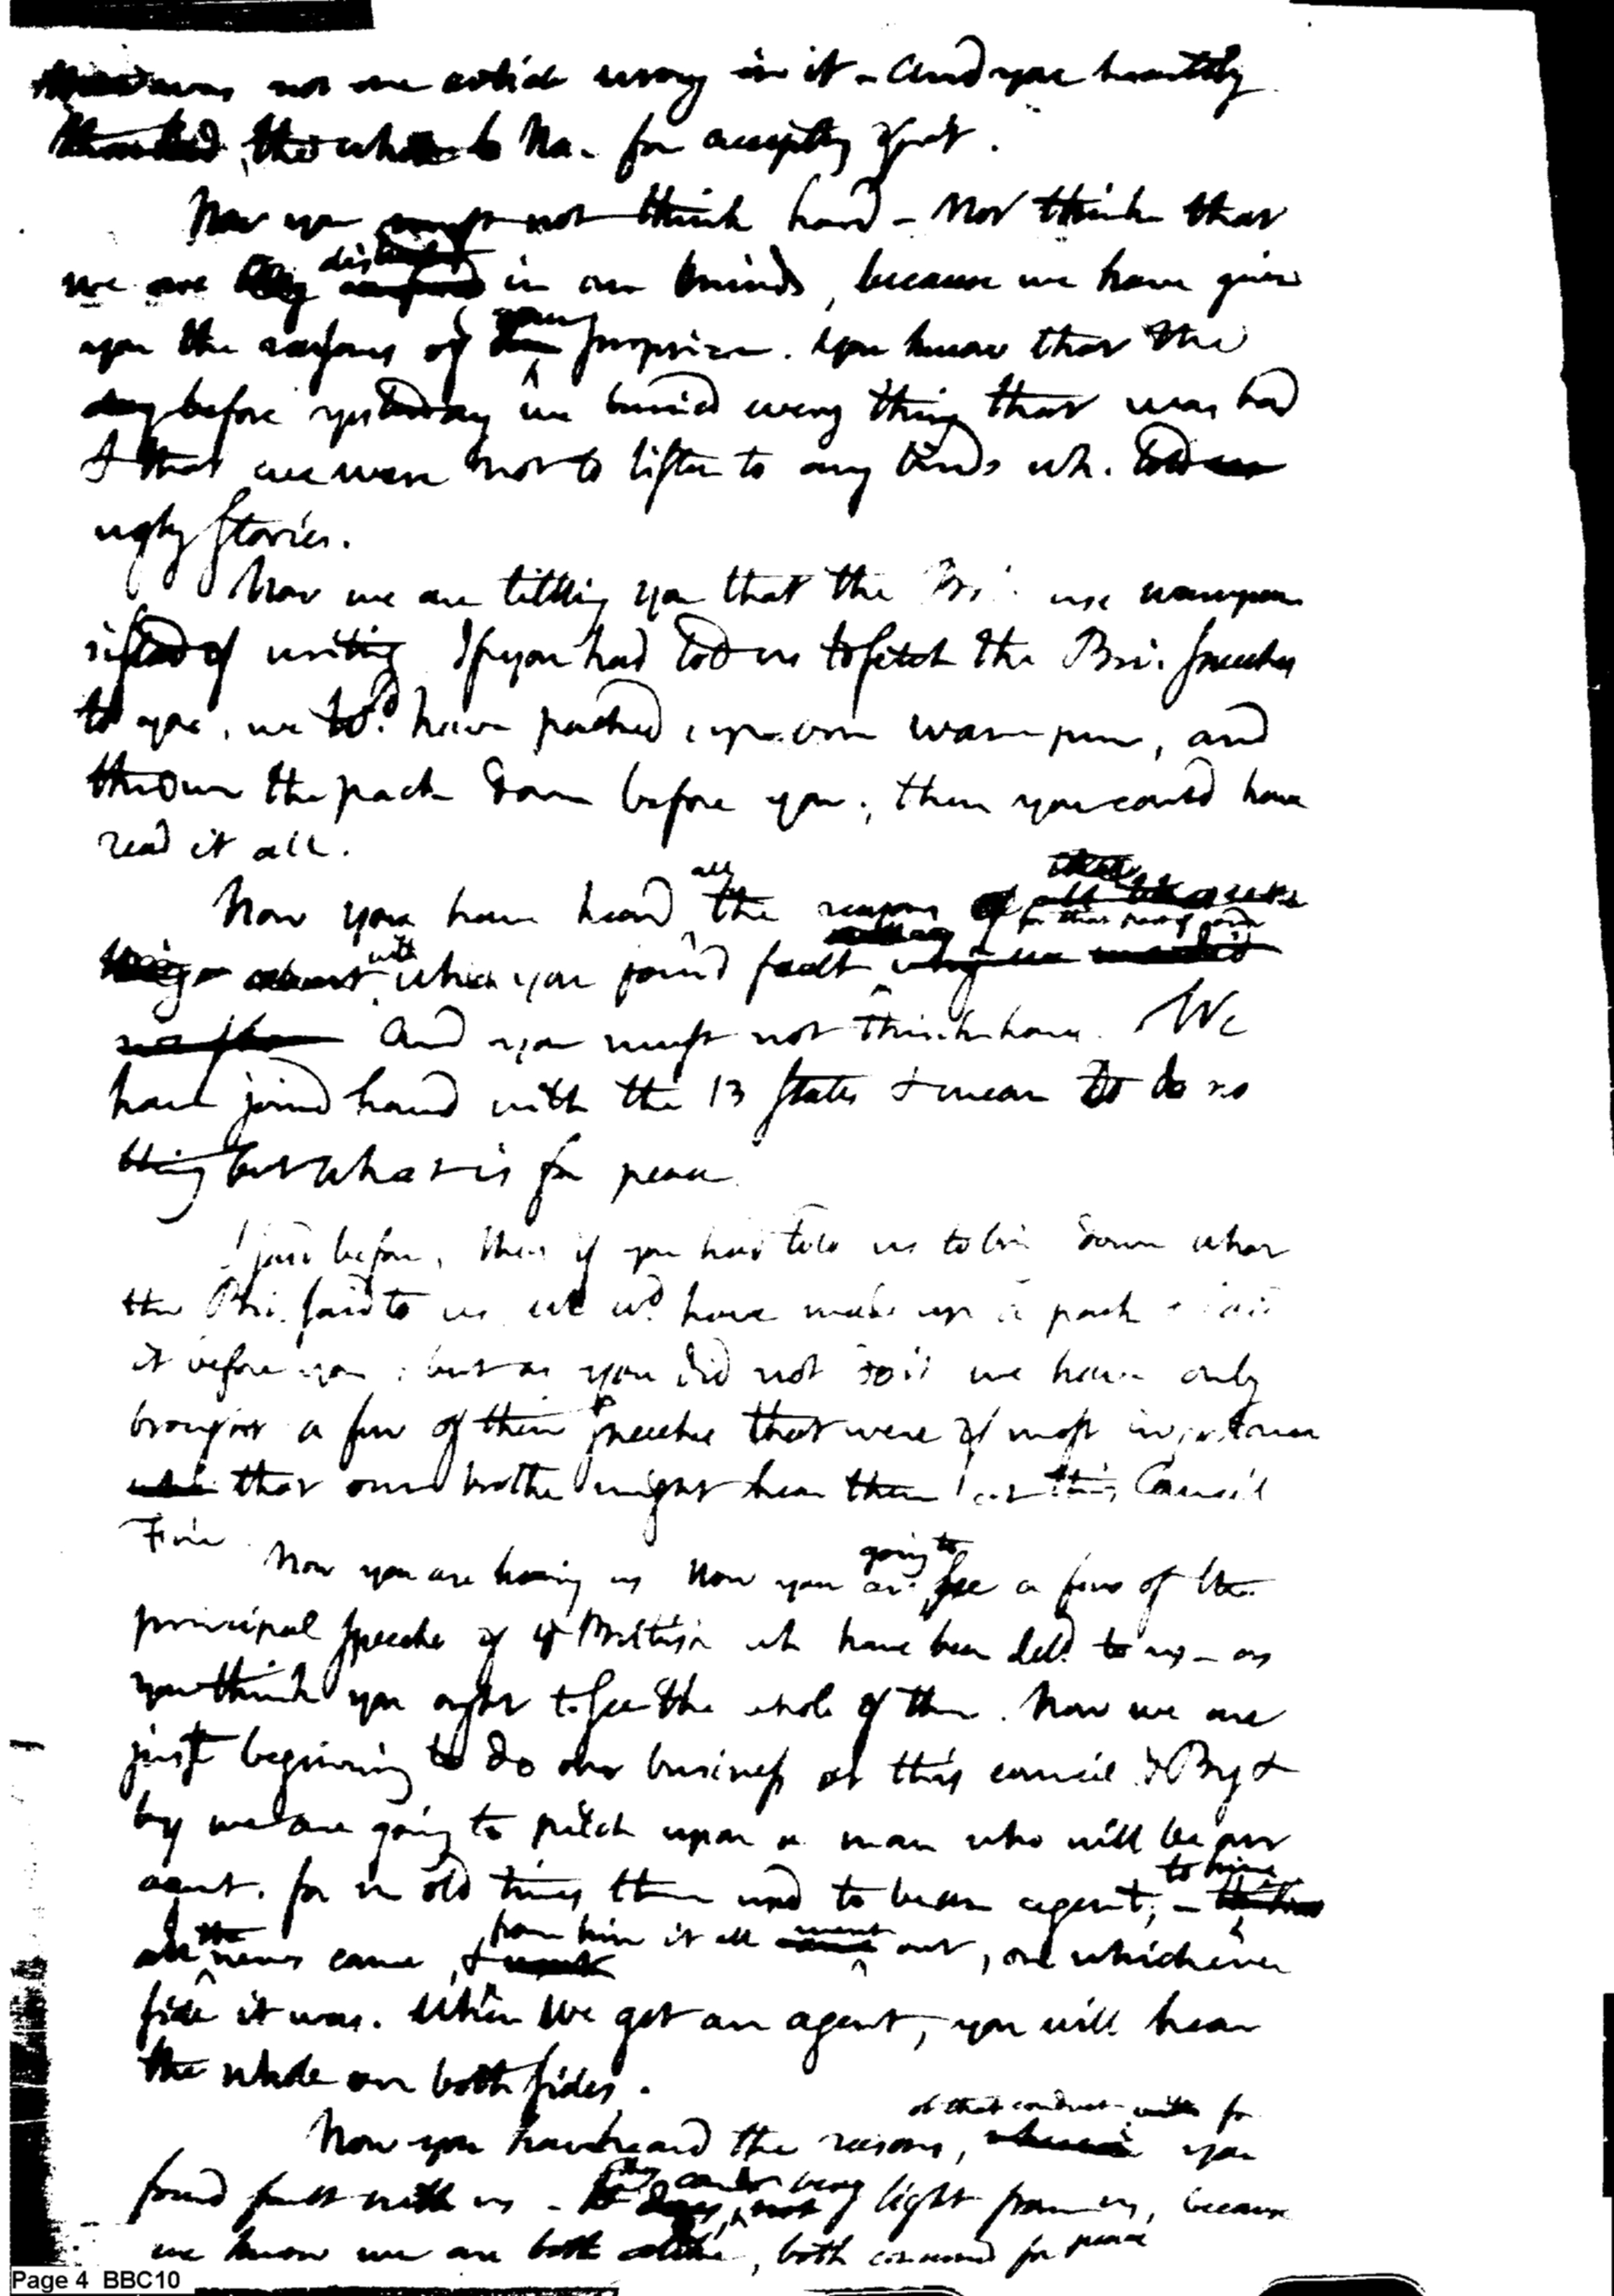 not one article wrong in it - And you heartily
the whole to Na. for accepting of it.
Now you must not think hard - Nor think that
we are in our minds, because we have given
you the reasons of your surprise. You know that the
day before yesterday we buried every thing that was bad
& that we were not to listen to any birds wh. told us
ugly stories.
Now we are telling you that the Bri. use wampum
instead of writing If you had told us to fetch the Bri. speeches
to you, we wd. have packed up our wampum, and
thrown the pack down before you; then you could have
read it all.
Now you have heard all the reasons of
things about with which you found fault
And you must not think hard. We
have joined hand with the 13 States & mean to do no
thing but what is for peace.
I said before, that if you had told us to bring down what
the Bri. said to us we wd. have made up a pack & laid
it before you; but as you did not do it we have only
brought a few of their speeches that were of most importance
that our brothers might hear them at this Council
Fire. Now you are hearing us Now you are going to see a few of the
principal speeches of ye British wh have been deld. to us - as
you think you ought to see the whole of them. Now we are
just beginning to do our business at this council & By &
by we are going to pitch upon a man who will be our
agent, for in old times there used to be an agent; - to him
all the news came, & from him it all went out, on whichever
side it was. When We get an agent, you will hear
the whole on both sides.
Now you have heard the reasons, of that conduct for you
found fault with us - light from us, because
we know we are both alike, both concerned for peace
Page 4 BBC10